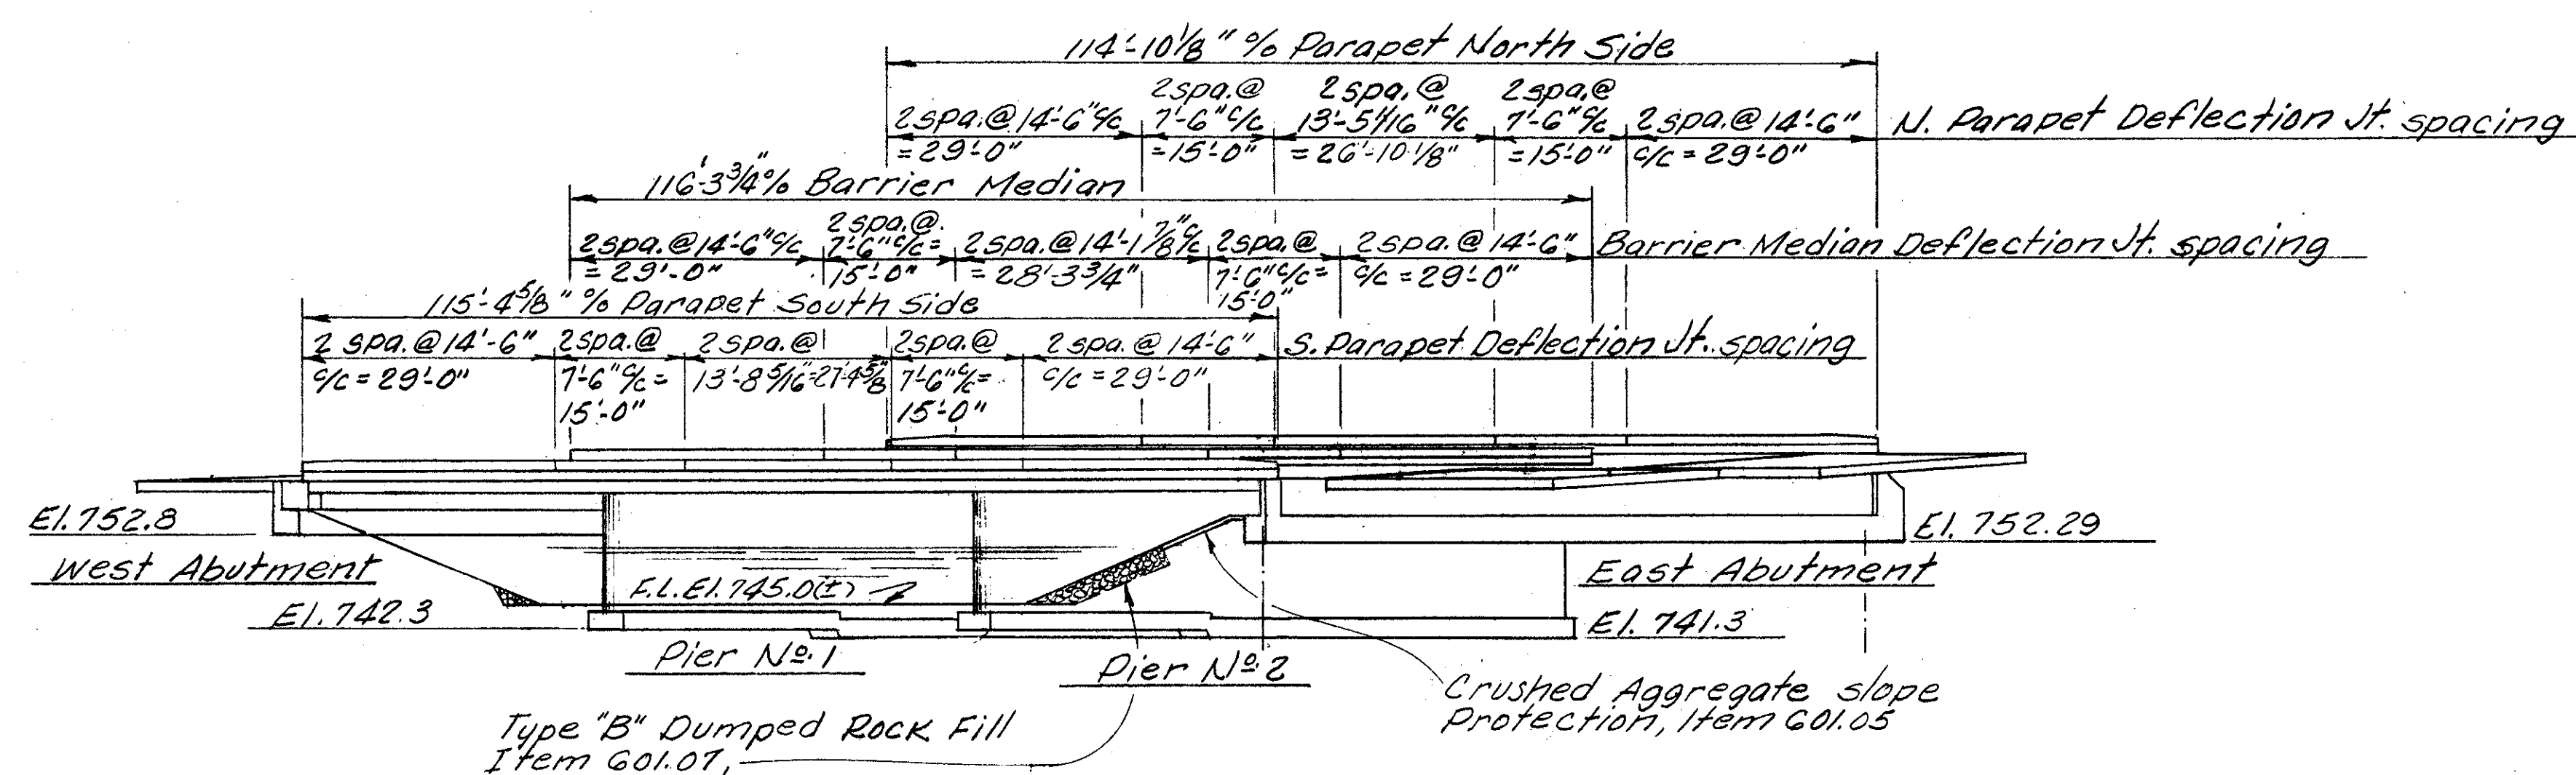 114'-10 1/8" % Parapet North Side
2 spa.@ 14'-6" c/c = 29'-0"
2 spa.@ 7'-6" c/c = 15'-0"
2 spa.@ 13'-5 1/16" c/c = 26'-10 1/8"
2 spa.@ 7'-6" c/c = 15'-0"
2 spa.@ 14'-6" c/c = 29'-0"
N. Parapet Deflection Jt. spacing
116'-3 3/4" % Barrier Median
2 spa.@ 14'-6" c/c = 29'-0"
2 spa.@ 7'-6" c/c = 15'-0"
2 spa.@ 14'-1 7/8" c/c = 28'-3 3/4"
2 spa.@ 7'-6" c/c = 15'-0"
2 spa.@ 14'-6" c/c = 29'-0"
Barrier Median Deflection Jt. spacing
115'-4 5/8" % Parapet South Side
2 spa.@ 14'-6" c/c = 29'-0"
2 spa.@ 7'-6" c/c = 15'-0"
2 spa.@ 13'-8 5/16" = 27'-4 5/8
2 spa.@ 7'-6" c/c = 15'-0"
2 spa.@ 14'-6" c/c = 29'-0"
S. Parapet Deflection Jt. spacing
El. 752.8
West Abutment
El. 742.3
F.L. El. 745.0(±)
El. 752.29
East Abutment
El. 741.3
Pier No. 1
Pier No. 2
Crushed Aggregate slope
Protection, Item 601.05
Type "B" Dumped Rock Fill
Item 601.07,